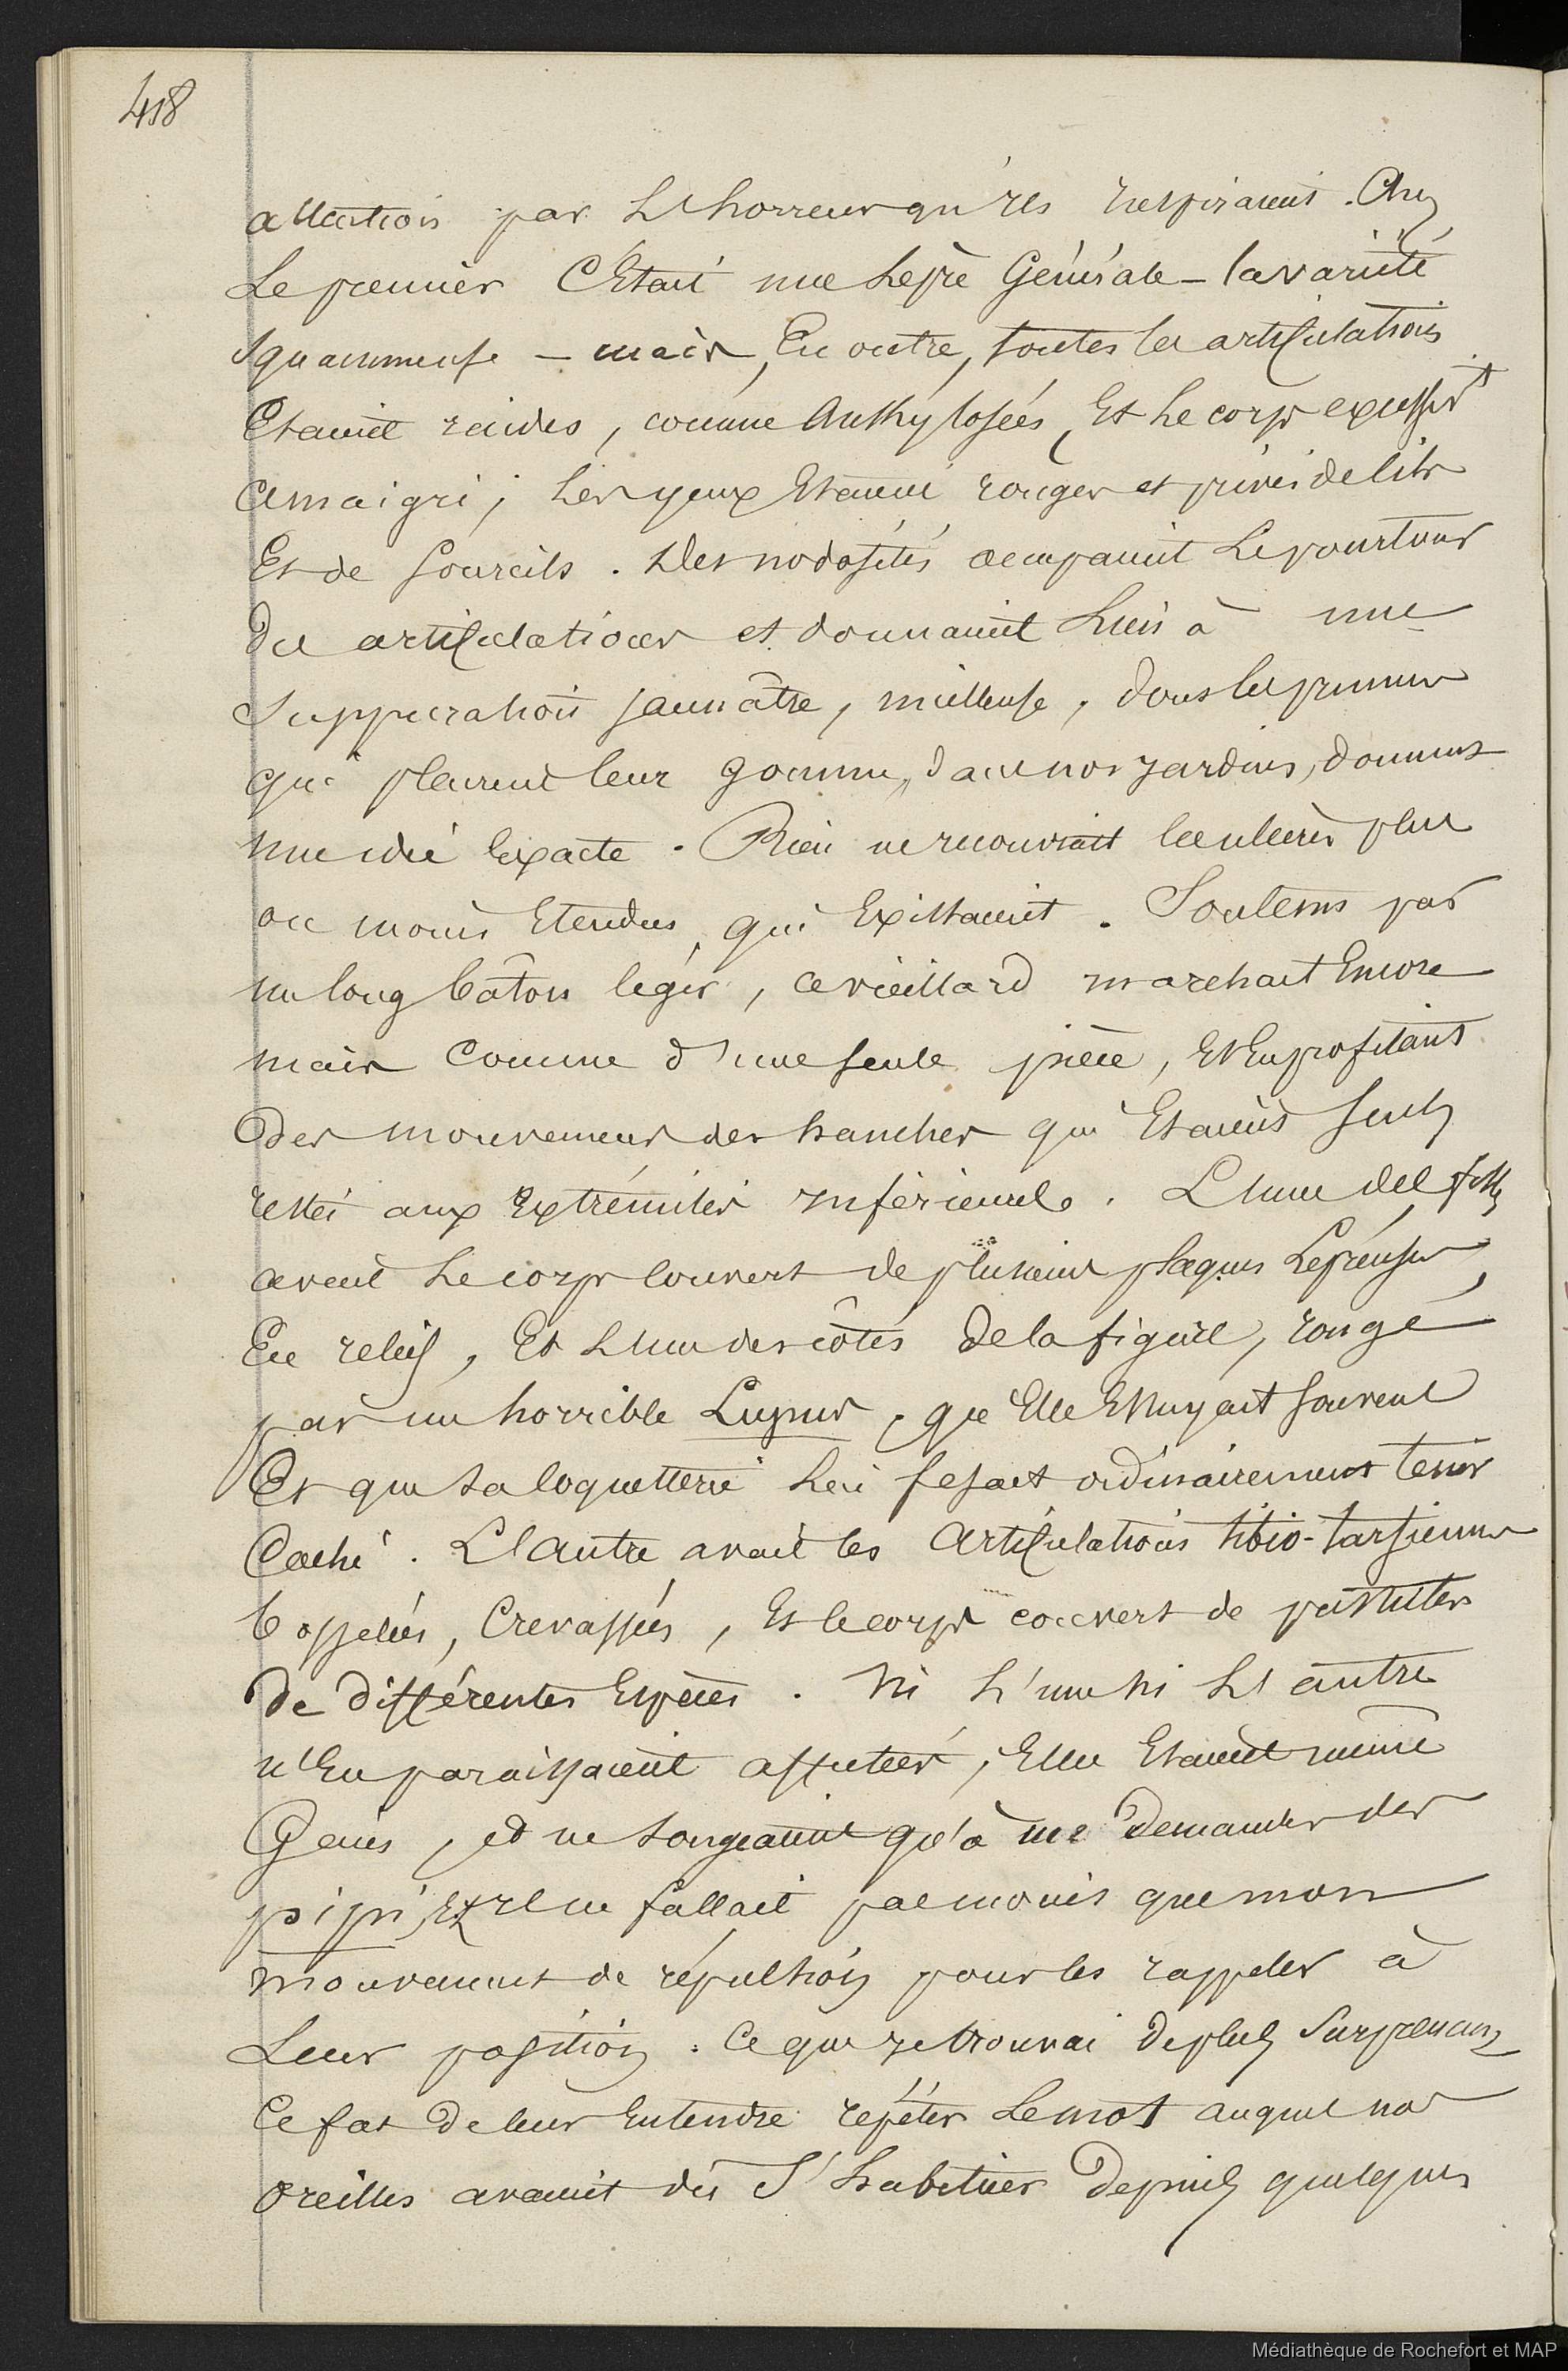 418
attention par l'horreur qu'ils inspiraient. Chez
le premier c'était une lèpre générale - la variété
squammeuse - mais, en outre, toutes les articulations
étaient raides, comme ankylosées, et le corps excessivt
amaigri; les yeux étaient rouges et privés de cils
et de sourcils. Des nodosités occupaient le pourtour
des articulations et donnaient lieu à une
suppuration jaunâtre, mielleuse, dont les pruniers
qui pleurent leur gomme, dans nos jardins, donnent
une idée exacte. Rien ne recouvrait les ulcères plus
ou moins étendus, qui existaient. Soutenu par
un long bâton léger, ce vieillard marchait encore
mais comme d'une seule pièce, et en profitant
des mouvemens des hanches qui étaient seuls
restés aux extrémités inférieures. L'une des filles
avait le corps couvert de plusieurs plaques lépreuses,
en relief, et l'un des côtés de la figure, rongé
par un horrible Lupus, que elle essuyait souvent
et que sa coquetterie lui fesait ordinairement tenir
caché. L'autre avait les articulations tibio-tarsiennes
bosselées, crevassées, et le corps couvert de pustules
de différentes espèces. Ni l'une ni l'autre
n'en paraissaient affectées, elles étaient même
gaies, et ne songeaient qu'à me demander des
pipi, et il ne fallait pas moins que mon
mouvement de répulsion pour les rappeler à
leur position. Ce que je trouvai de plus surprenant
ce fut de leur entendre répéter le mot auquel nos
oreilles avaient dû s'habituer depuis quelques
Médiathèque de Rochefort et MAP